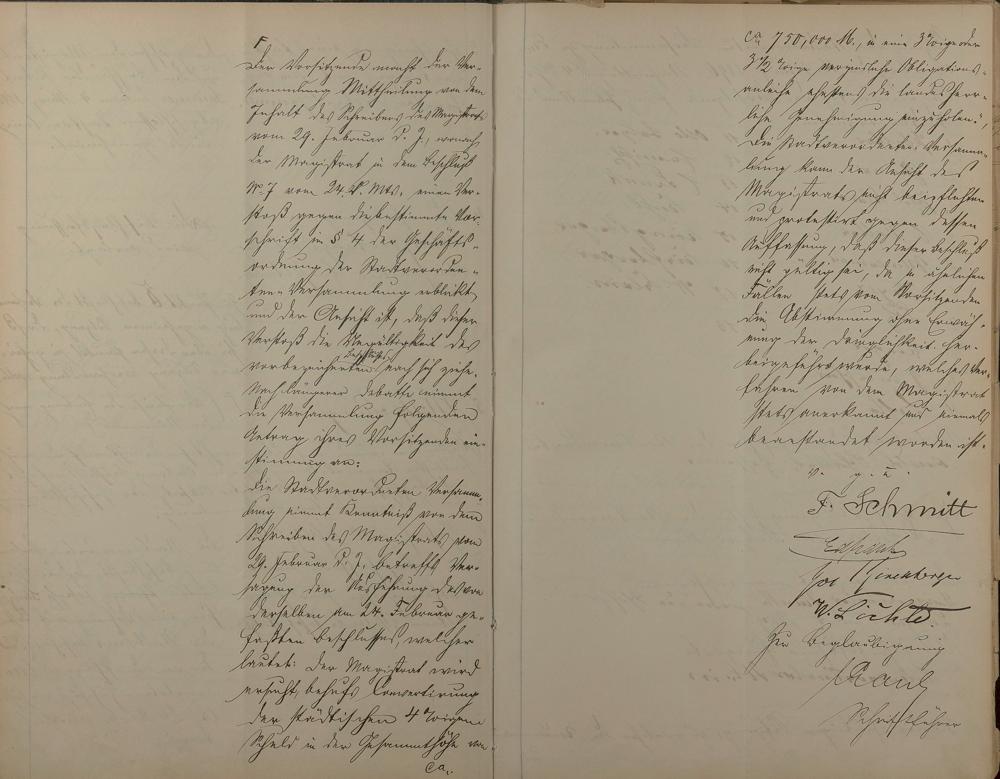 Der Vorsitzende macht der Ver-
sammlung Mittheilung von dem
Inhalt des Schreibens des Magistrats
vom 29. Februar d. J., wonach
der Magistrat in dem Beschluß
No 7 vom 24. d. Mts. einen Ver-
stoß gegen die bestimmte Vor-
schrift in § 4 der Geschäfts-
ordnung der Stadtverordne-
ten Versammlung erblickt
und der Ansicht ist, daß dieser
Verstoß die Ungültigkeit des
vorbezeichneten Beschlusses nach sich ziehe.
Nach längerer Debatte nimmt
die Versammlung folgenden
Antrag ihres Vorsitzenden ein-
stimmig an:
Die Stadtverordneten Versamm-
lung nimmt Kenntniß von dem
Schreiben des Magistrats vom
29. Februar d. J., betreffs Ver-
sagung der Ausführung des von
derselben am 24. Februar ge-
faßten Beschlusses, welcher
lautet: Der Magistrat wird
ersucht, behufs Convertirung
der städtischen 4 %igen
Schuld in der Gesammthöhe von
ca.
ca 750,000 M., in eine 3 %ige oder
3 1/2 %ige verzinsliche Obligations-
anleihe ehestens die landesherr-
liche Genehmigung einzuholen.",
Die Stadtverordneten-Versamm-
lung kann der Ansicht des
Magistrats nicht beipflichten
und protestirt gegen dessen
Auffassung, daß dieser Beschluß
nicht gültig sei, da in ähnlichen
Fällen stets vom Vorsitzenden
die Abstimmung ohne Erwäh-
nung der Dringlichkeit her-
beigeführt wurde, welches Ver-
fahren von dem Magistrat
stets anerkannt und niemals
beanstandet worden ist.
v. g. u.
F. Schmitt
W. Füchte
Zur Beglaubigung
Schriftführer